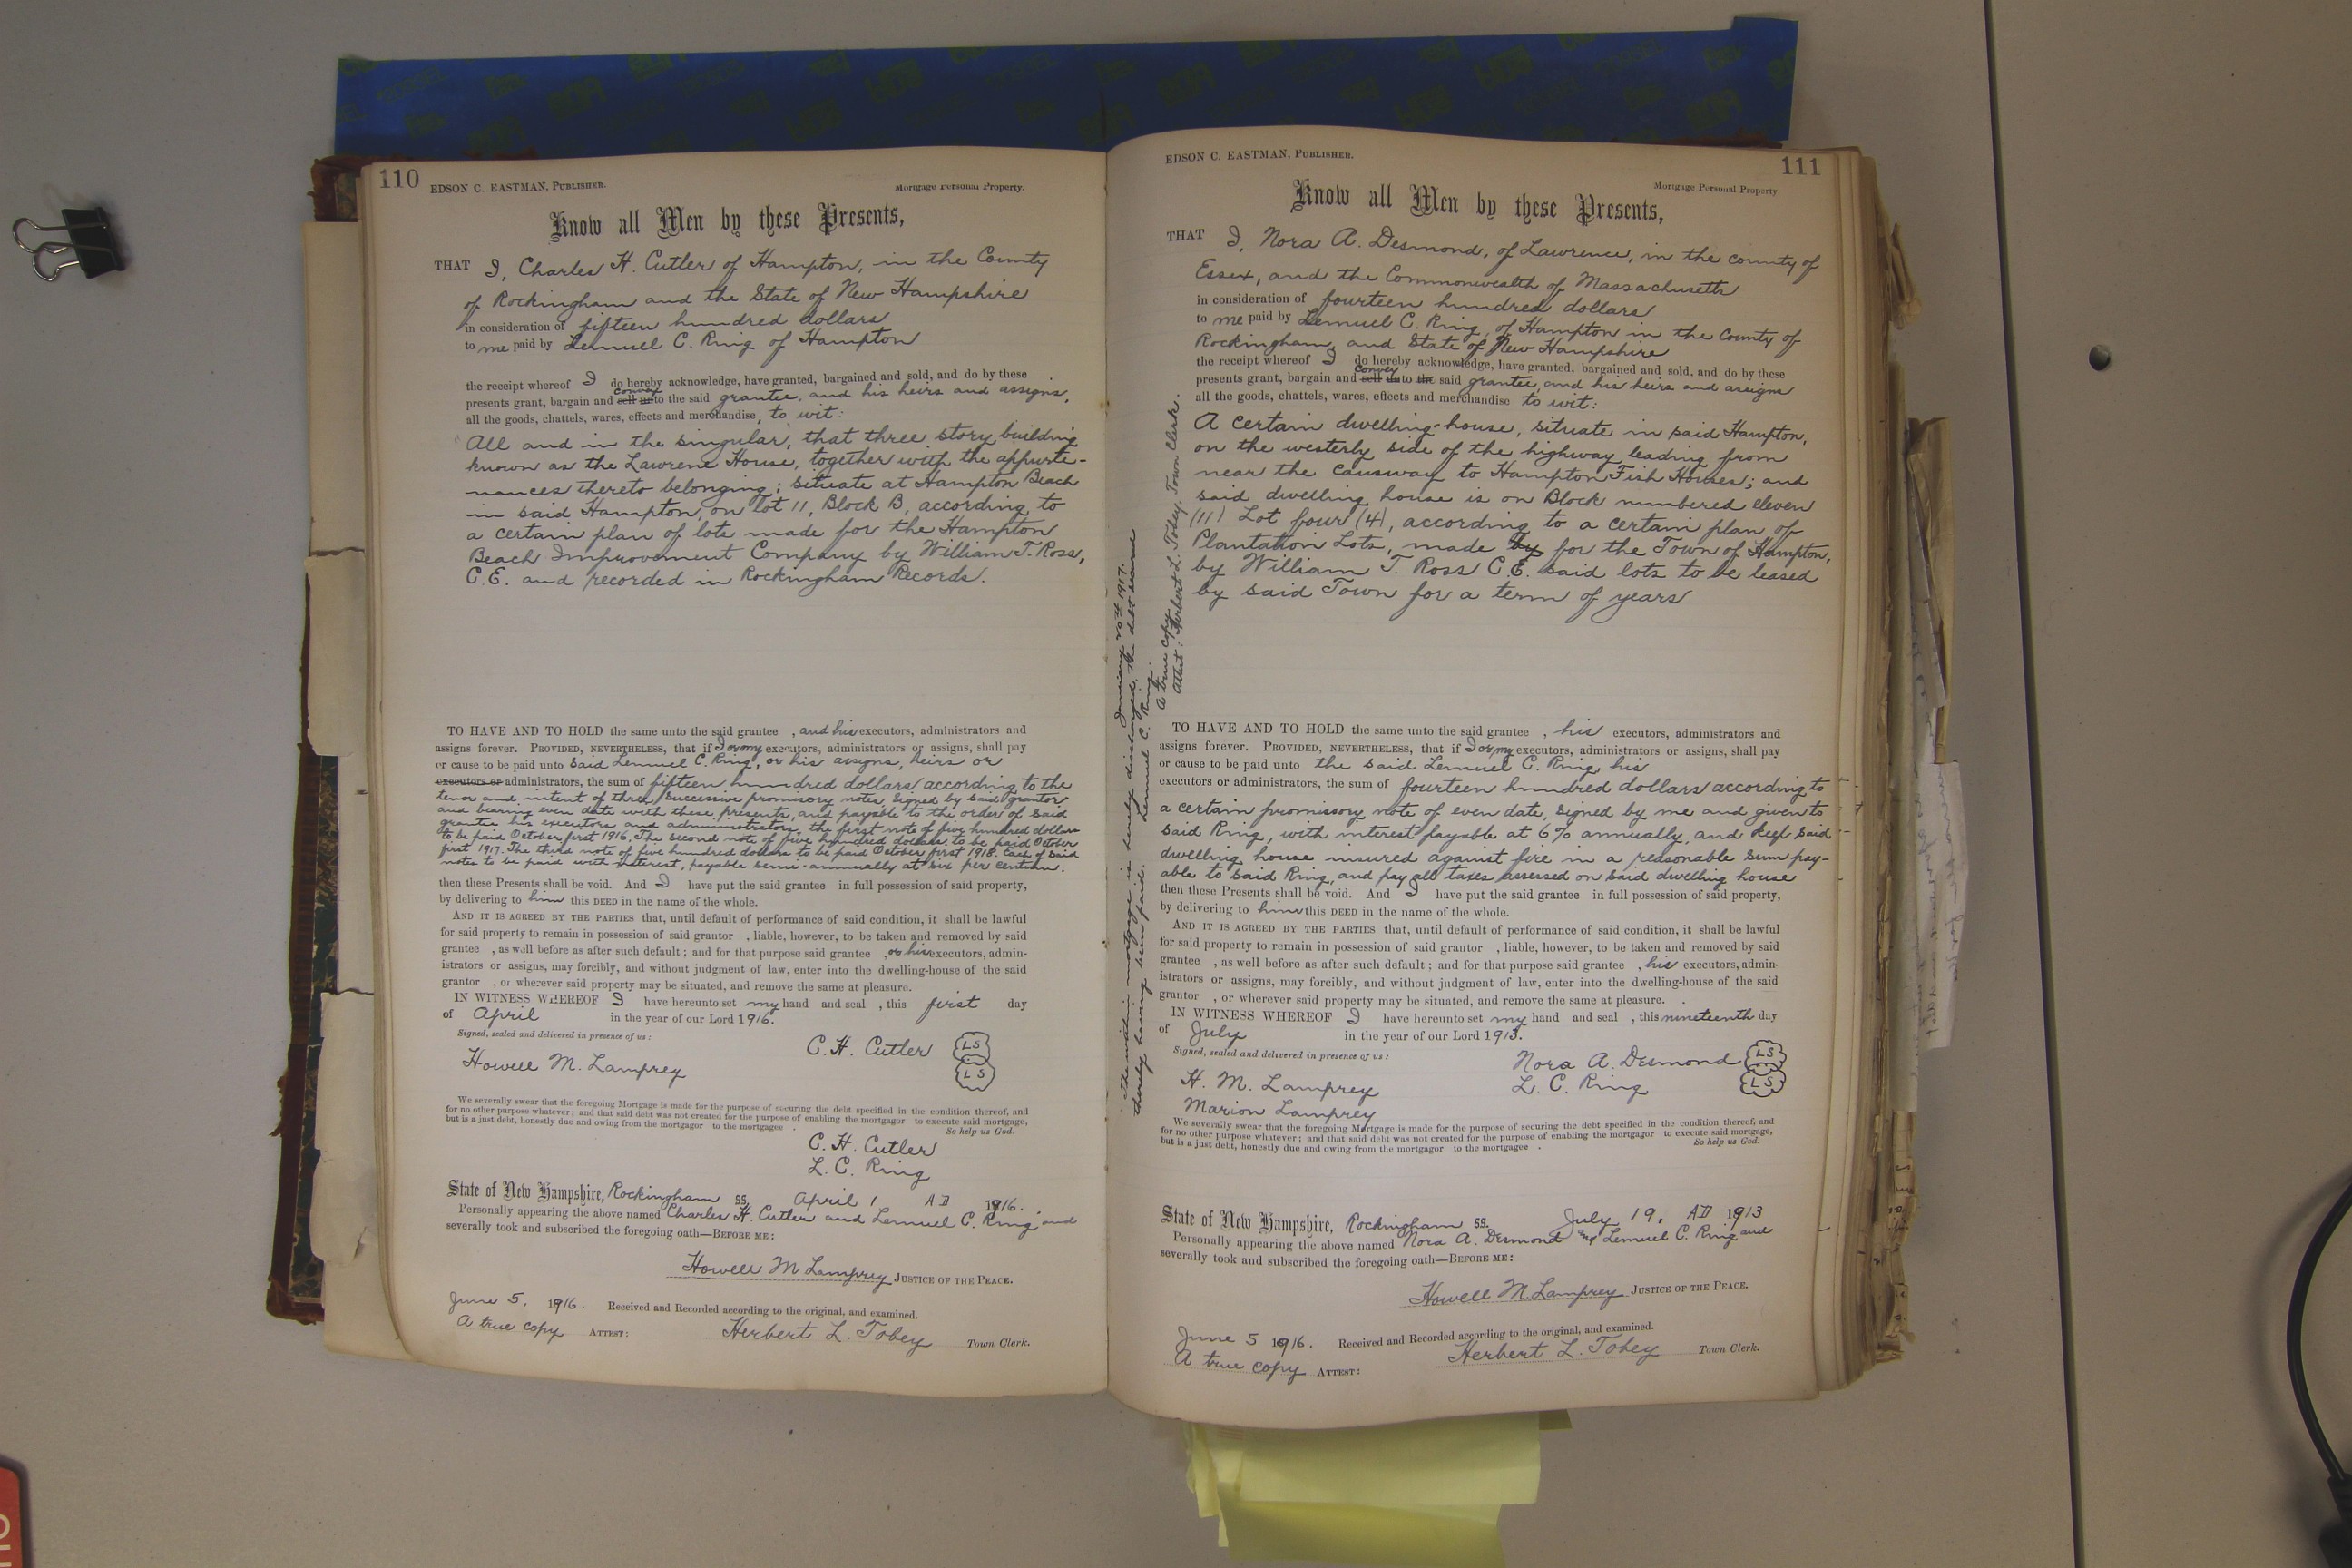 110
EDSON C. EASTMAN, PUBLISHER.
Mortgage Personal Property.
Know all Men by these Presents,
THAT I, Charles H. Cutler of Hampton, in the County
of Rockingham and the State of New Hampshire
in consideration of fifteen hundred dollars
to me paid by Lemuel C. Ring of Hampton
the receipt whereof I do hereby acknowledge, have granted, bargained and sold, and do by these
convey
presents grant, bargain and sell unto the said grantee, and his heirs and assigns,
all the goods, chattels, wares, effects and merchandise, to wit:
All and in the singular, that three story building
known as the Lawrene House, together with the appurte-
nances thereto belonging; situate at Hampton Beach
in said Hampton, on lot 11, Block B, according to
a certain plan of lots made for the Hampton
Beach Improvement Company by William T. Ross,
C.E. and recorded in Rockingham Records.
TO HAVE AND TO HOLD the same unto the said grantee , and his executors, administrators and
assigns forever. PROVIDED, NEVERTHELESS, that if I or my executors, administrators or assigns, shall pay
or cause to be paid unto Said Lemuel C. Ring, or his assigns, heirs or
executors or administrators, the sum of fifteen hundred dollars according to the
tenor and intent of three successive promissory notes, signed by said grantor
and bearing even date with these presents, and payable to the order of said
grantee his executors and administrators, the first note of five hundred dollars
to be paid October first 1916. The second note of five hundred dollars to be paid October
first 1917. The third note of five hundred dollars to be paid October first 1918. Each of said
notes to be paid with interest, payable semi-annually at six per centum.
then these Presents shall be void. And I have put the said grantee in full possession of said property,
by delivering to him this DEED in the name of the whole.
AND IT IS AGREED BY THE PARTIES that, until default of performance of said condition, it shall be lawful
for said property to remain in possession of said grantor , liable, however, to be taken and removed by said
grantee , as well before as after such default; and for that purpose said grantee , or his executors, admin-
istrators or assigns, may forcibly, and without judgment of law, enter into the dwelling-house of the said
grantor , or wherever said property may be situated, and remove the same at pleasure.
IN WITNESS WHEREOF I have hereunto set my hand and seal , this first day
of April in the year of our Lord 1916.
Signed, sealed and delivered in presence of us:
C. H. Cutler LS
Howell M. Lamprey LS
We severally swear that the foregoing Mortgage is made for the purpose of securing the debt specified in the condition thereof, and
for no other purpose whatever; and that said debt was not created for the purpose of enabling the mortgagor to execute said mortgage,
but is a just debt, honestly due and owing from the mortgagor to the mortgagee . So help us God.
C. H. Cutler
L. C. Ring
State of New Hampshire, Rockingham SS. April 1 AD 1916.
Personally appearing the above named Charles H. Cutler and Lemuel C. Ring and
severally took and subscribed the foregoing oath—BEFORE ME:
Howell M Lamprey JUSTICE OF THE PEACE.
June 5, 1916. Received and Recorded according to the original, and examined.
A true copy ATTEST: Herbert L. Tobey Town Clerk.
111
EDSON C. EASTMAN, PUBLISHER.
Mortgage Personal Property
Know all Men by these Presents,
THAT I, Nora A. Desmond, of Lawrence, in the county of
Essex, and the Commonwealth of Massachusetts
in consideration of fourteen hundred dollars
to me paid by Lemuel C. Ring, of Hampton in the County of
Rockingham, and State of New Hampshire
the receipt whereof I do hereby acknowledge, have granted, bargained and sold, and do by these
convey
presents grant, bargain and sell unto the said grantee, and his heirs and assigns
all the goods, chattels, wares, effects and merchandise to wit:
A certain dwelling-house, situate in said Hampton,
on the westerly side of the highway leading from
near the Causway to Hampton Fish Houses; and
said dwelling house is on Block numbered eleven
(11) Lot four (4), according to a certain plan of
Plantation Lots, made by for the Town of Hampton,
by William T. Ross C.E. said lots to be leased
by said Town for a term of years
TO HAVE AND TO HOLD the same unto the said grantee , his executors, administrators and
assigns forever. PROVIDED, NEVERTHELESS, that if I or my executors, administrators or assigns, shall pay
or cause to be paid unto the said Lemuel C. Ring his
executors or administrators, the sum of fourteen hundred dollars according to
a certain promissory note of even date, signed by me and given to
said Ring, with interest payable at 6% annually, and keep said
dwelling house insured against fire in a reasonable sum pay-
able to said Ring, and pay all taxes assessed on said dwelling house
then these Presents shall be void. And I have put the said grantee in full possession of said property,
by delivering to him this DEED in the name of the whole.
AND IT IS AGREED BY THE PARTIES that, until default of performance of said condition, it shall be lawful
for said property to remain in possession of said grantor , liable, however, to be taken and removed by said
grantee , as well before as after such default; and for that purpose said grantee , his executors, admin-
istrators or assigns, may forcibly, and without judgment of law, enter into the dwelling-house of the said
grantor , or wherever said property may be situated, and remove the same at pleasure.
IN WITNESS WHEREOF I have hereunto set my hand and seal , this nineteenth day
of July in the year of our Lord 1913.
Signed, sealed and delivered in presence of us:
Nora A. Desmond LS
H. M. Lamprey L. C. Ring LS
Marion Lamprey
We severally swear that the foregoing Mortgage is made for the purpose of securing the debt specified in the condition thereof, and
for no other purpose whatever; and that said debt was not created for the purpose of enabling the mortgagor to execute said mortgage,
but is a just debt, honestly due and owing from the mortgagor to the mortgagee . So help us God.
State of New Hampshire, Rockingham SS. July 19, AD 1913
Personally appearing the above named Nora A. Desmond and Lemuel C. Ring and
severally took and subscribed the foregoing oath—BEFORE ME:
Howell M. Lamprey JUSTICE OF THE PEACE.
June 5 1916. Received and Recorded according to the original, and examined.
A true copy ATTEST: Herbert L. Tobey Town Clerk.
January 20th 1917.
The within mortgage is hereby discharged, the debt secured
thereby having been paid. Lemuel C. Ring.
A true copy
Attest: Herbert L. Tobey, Town Clerk.